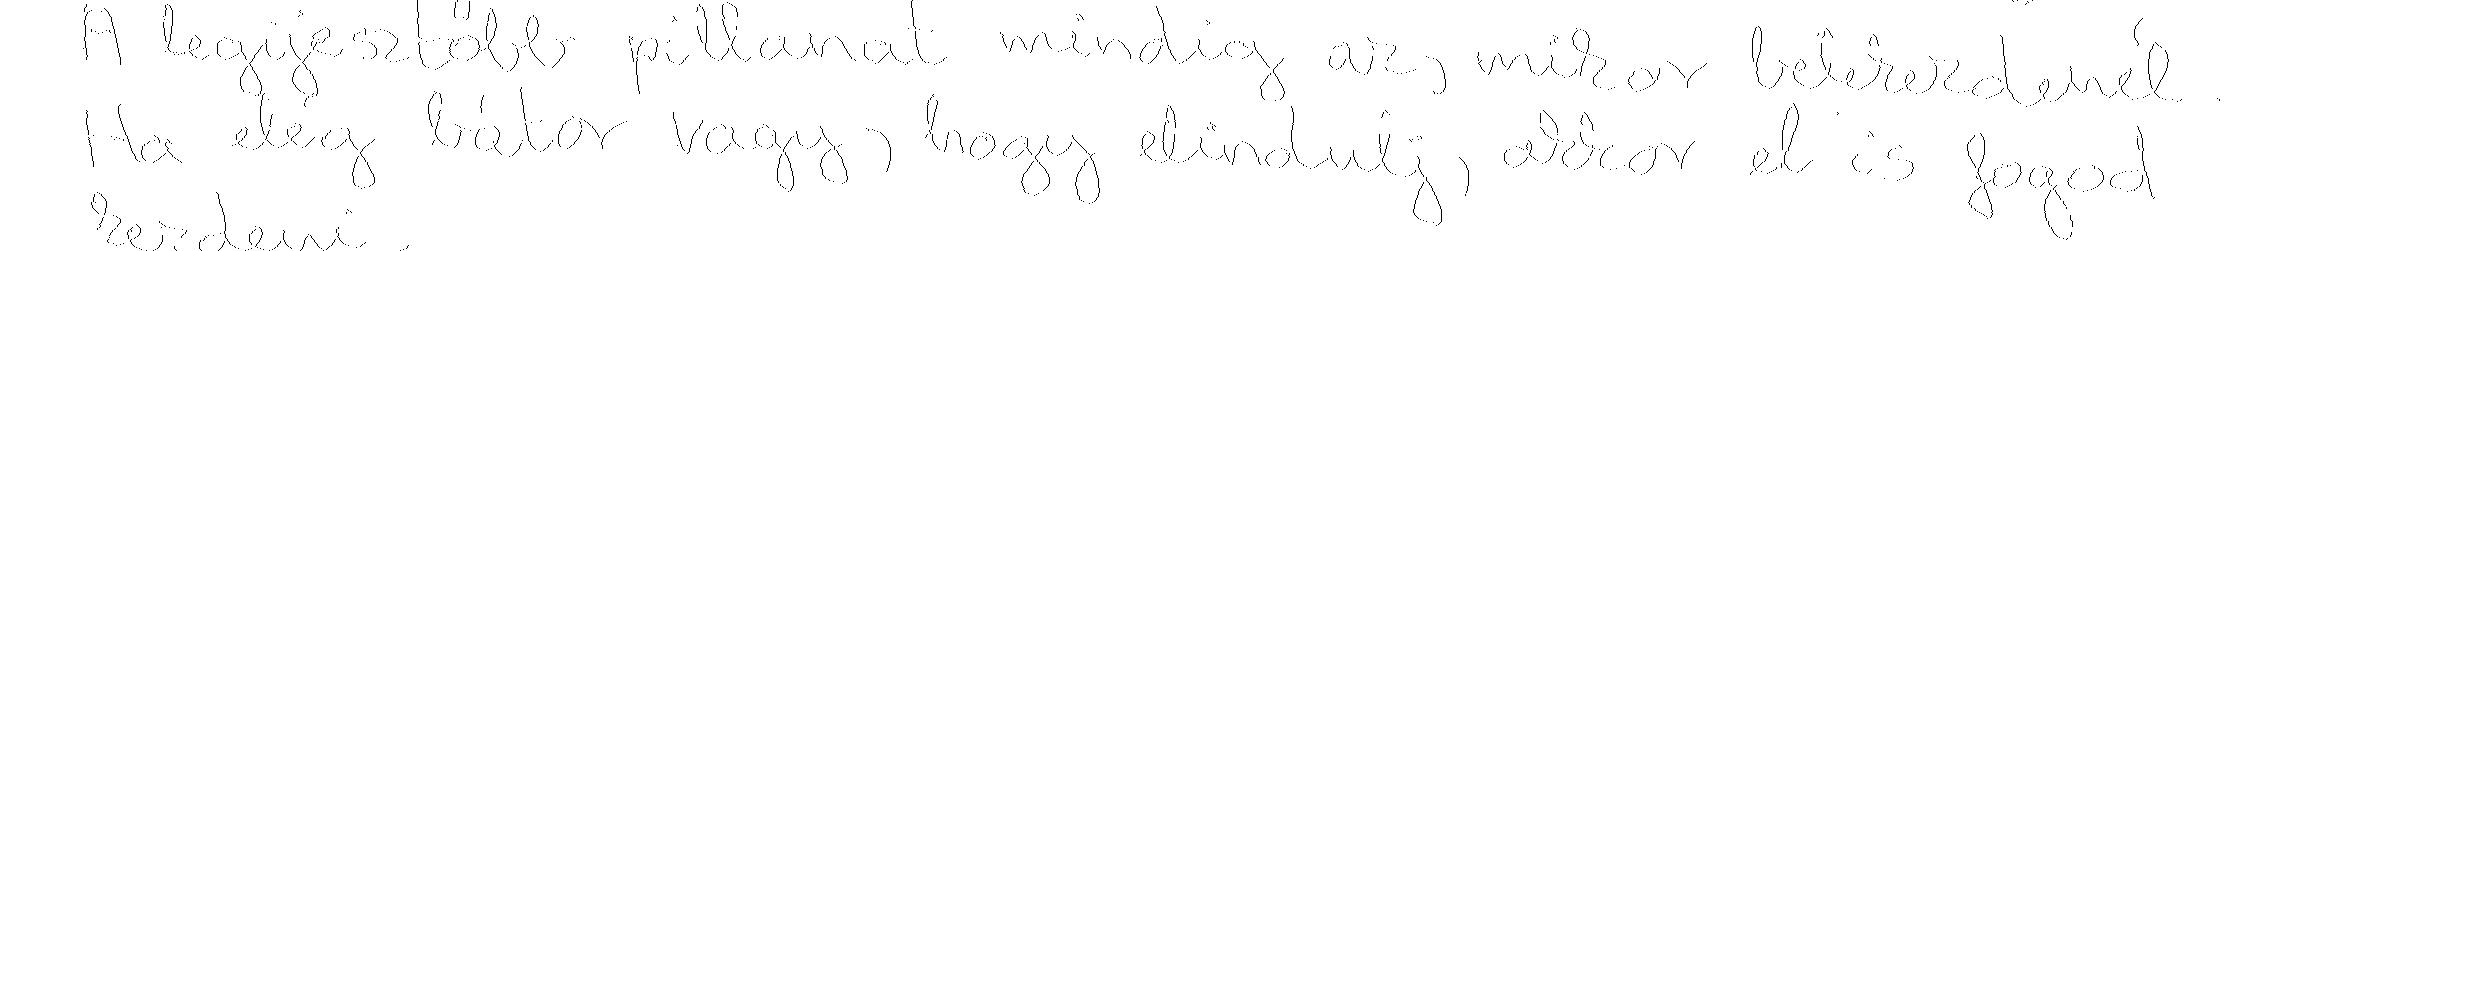 A legijesztőbb pillanat mindig az, mikor belekezdenél.
Ha elég bátor vagy, hogy elindulj, akkor el is fogod
kezdeni.